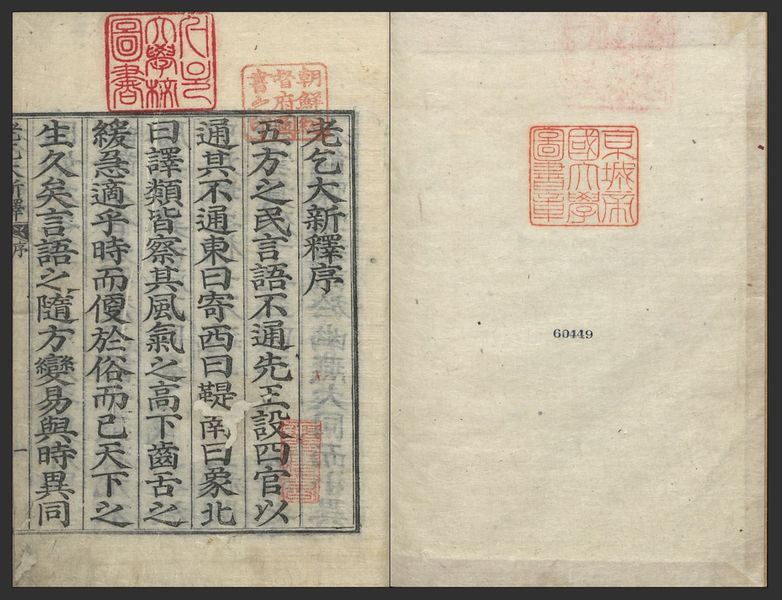 京城帝
國大學
圖書章
60449
老乞大新釋序
五方之民言語不通先王設四官以
通其不通東曰寄西曰鞮南曰象北
曰譯類皆察其風氣之高下齒舌之
緩急適乎時而便於俗而已天下之
生久矣言語之隨方變易與時異同
老乞大新釋 序
一
朝鮮總
督府圖
書之印
大學校
圖書